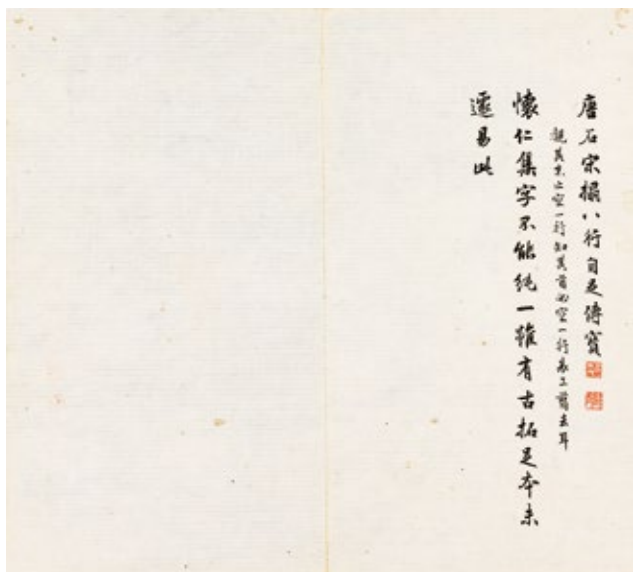 唐石宋搨八行自足傳寳
觀其末之空一行知其首必空一行表工剪去耳
懷仁集字不能純一雖有古拓足本未
遽易此